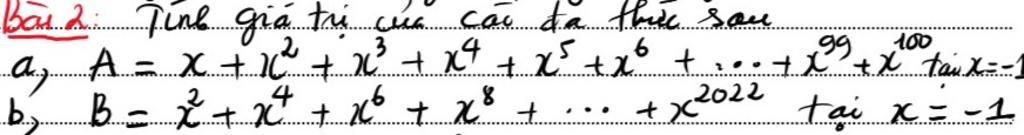 Bài 2: Tính giá trị của các đa thức sau
a, A = x + x² + x³ + x⁴ + x⁵ + x⁶ + ... + x⁹⁹ + x¹⁰⁰ tại x = -1
b, B = x² + x⁴ + x⁶ + x⁸ + ... + x²⁰²² tại x = -1